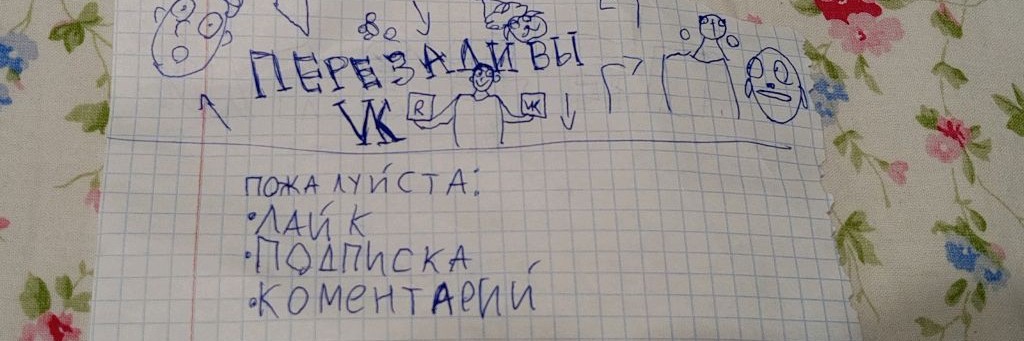 ПЕРЕЗАЛИВЫ
VK
R VK
ПОЖАЛУЙСТА:
•ЛАЙК
•ПОДПИСКА
•КОМЕНТАРИЙ